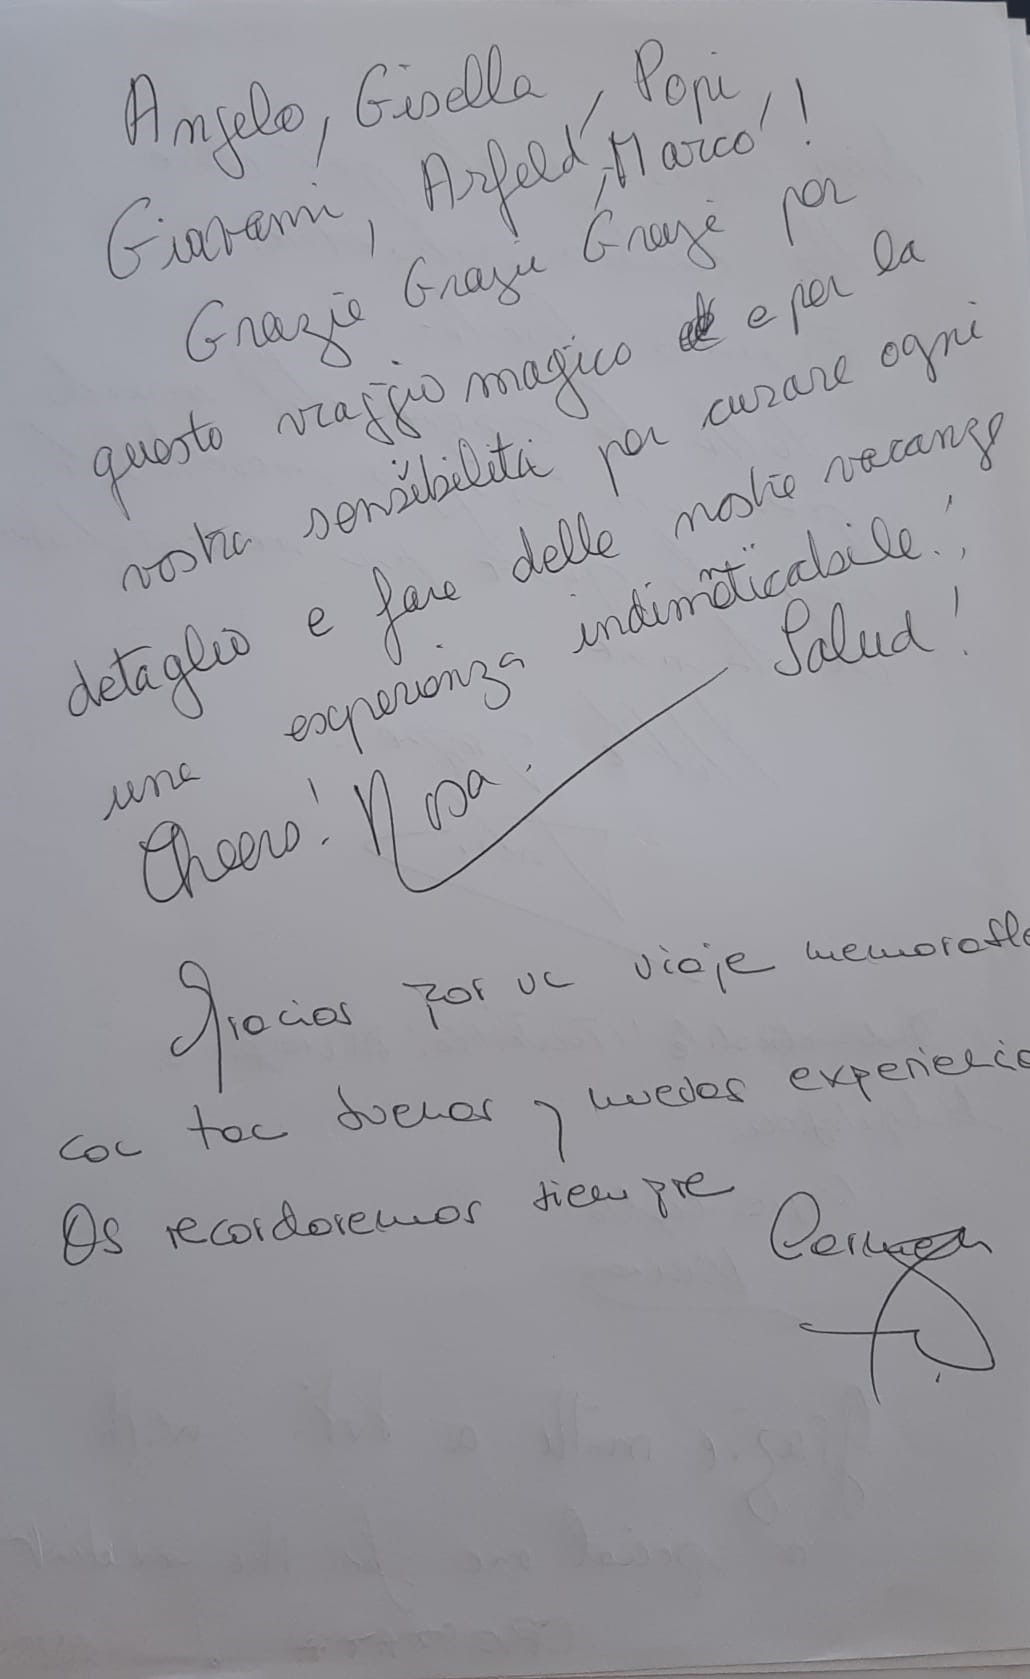 Angelo, Gisella, Popi,
Giovanni, Arfeld, Marco!
Grazie Grazie Grazie per
questo viaggio magico e per la
vostra sensibilità per curare ogni
detaglio e fare delle nostre vacanze
una experienza indimēticabile!
Salud!
Cheers! Rosa.
Gracias por un viaje memorable
con tan buenas y nuevas experiencia
Os recordaremos siempre
Carmen